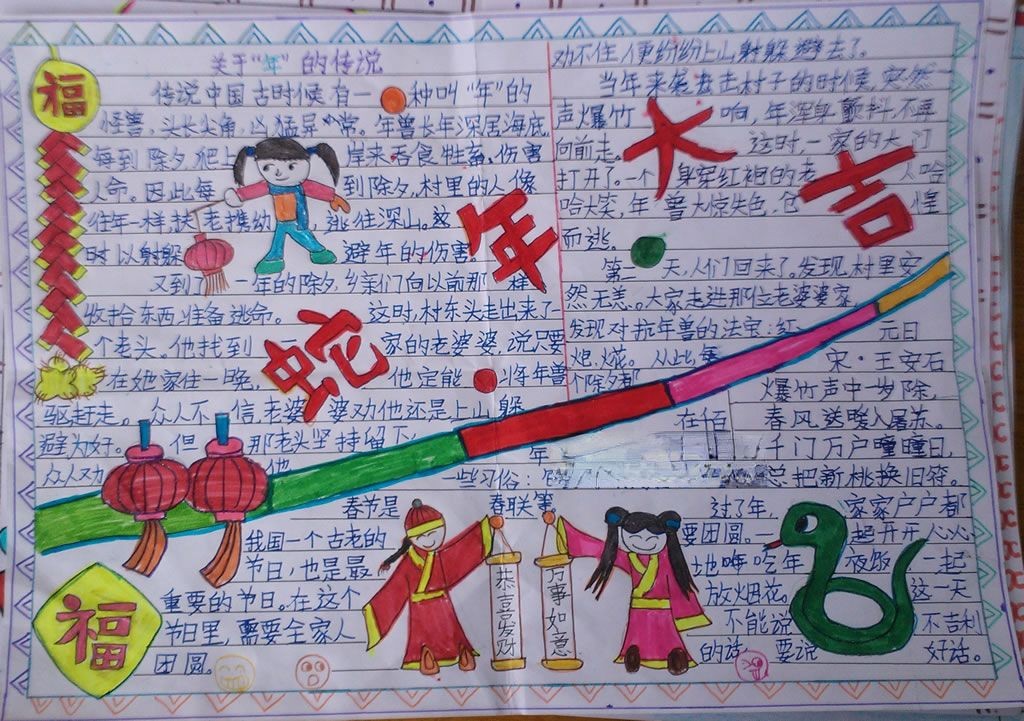 关于“年”的传说
福
传说中国古时候有一种叫“年”的
怪兽,头长尖角,凶猛异常。年兽长年深居海底,
每到除夕,爬上岸来吞食牲畜,伤害
人命。因此每到除夕,村里的人像
往年一样,扶老携幼逃往深山。这
时以躲避年的伤害
又到了一年的除夕,乡亲们向以前那样
收拾东西准备逃命。这时,村东头走出来了一
个老头。他找到一家的老婆婆说只要
在她家住一晚,他定能将年兽
驱赶走。众人不信,老婆婆劝他还是上山躲
避为好。但那老头坚持留下,
众人劝他
劝不住,便纷纷上山躲避去了。
当年来袭击走村子的时候,突然一
声爆竹响,年浑身颤抖,不再
向前走。这时,一家的大门
打开了。一个身穿红袍的老人哈
哈大笑,年兽大惊失色,仓惶
而逃。
第二天,人们回来了。发现,村里安
然无恙。大家走进那位老婆婆家,
发现对抗年兽的法宝:红
炮,烛。从此,每
个除夕都
在佰
年
一些习俗:
春联等
蛇年大吉
元日
宋·王安石
爆竹声中一岁除,
春风送暖入屠苏。
千门万户曈曈日,
总把新桃换旧符。
春节是
我国一个古老的
节日,也是最
重要的节日。在这个
节日里,需要全家人
团圆。
福
恭喜发财
万事如意
过了年,家家户户都
要团圆。一起开开心心
地嗨吃年夜饭,一起
放烟花。这一天
不能说不吉利
的话,要说好话。